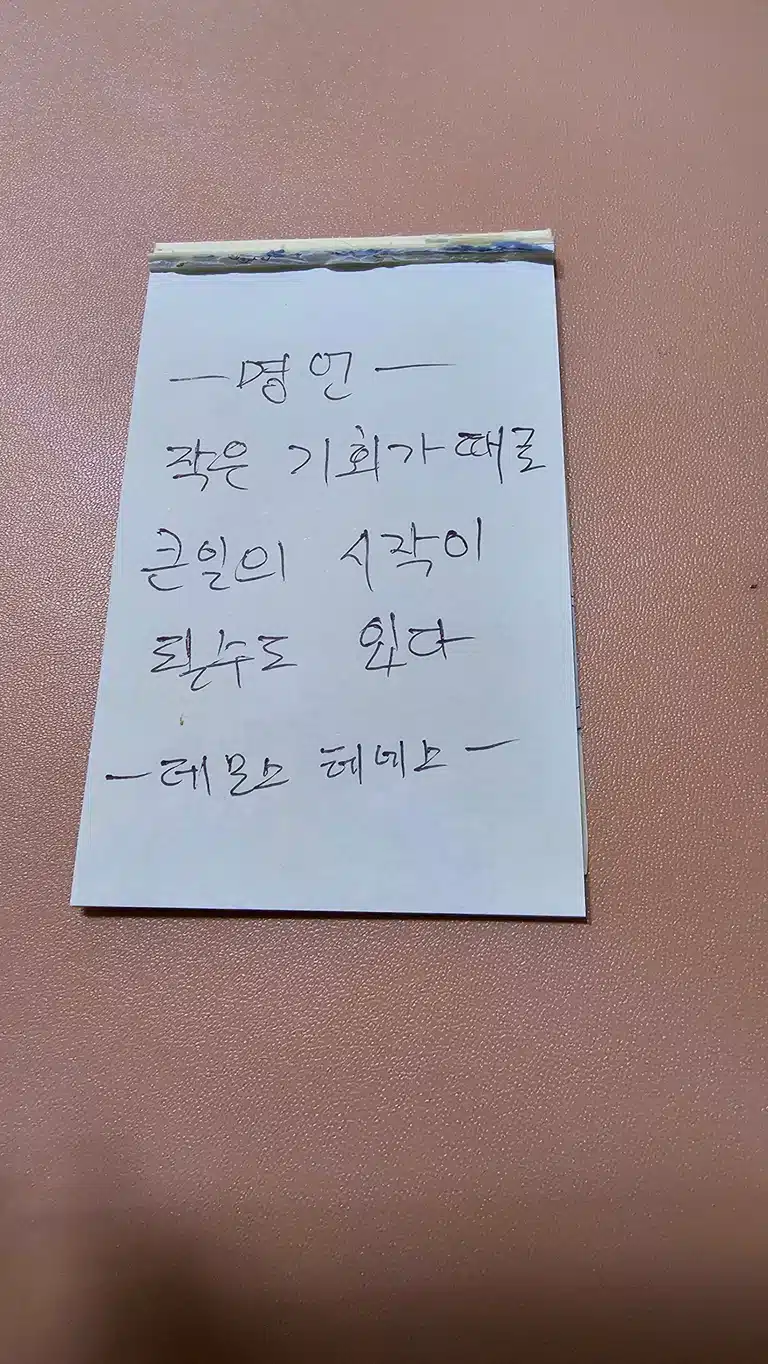 — 명언 —
작은 기회가 때로
큰일의 시작이
될수도 있다
— 데모스 테네스 —